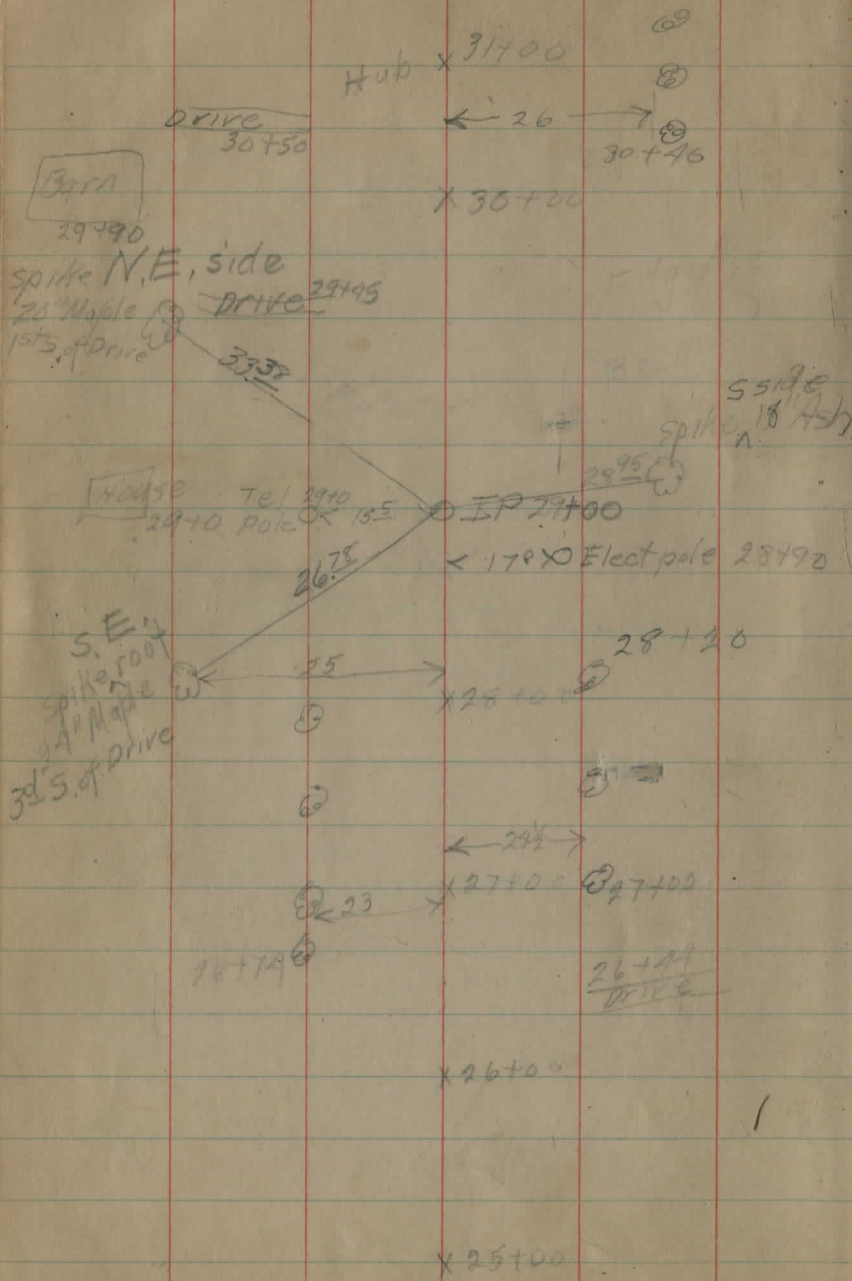 Hub x 31+00
Drive
30+50
← 26 →
30+46
Barn
29+90
x 30+00
N.E. side
Spike
20" Maple
1st S. of Drive
Drive 29+45
33.38
S side
Spike ^ 18" Ash
28.95
House
29+0
Tel 29+0
Pole
< 15.5 >
IP 29+00
Elect pole 28+90
26.78
S.E.
Spike ^ root
24" Maple
3d S. of Drive
25
28+20
x 28+00
24½
x 27+00
27+00
23
26+74
26+44
Drive
x 26+00
1
x 25+00